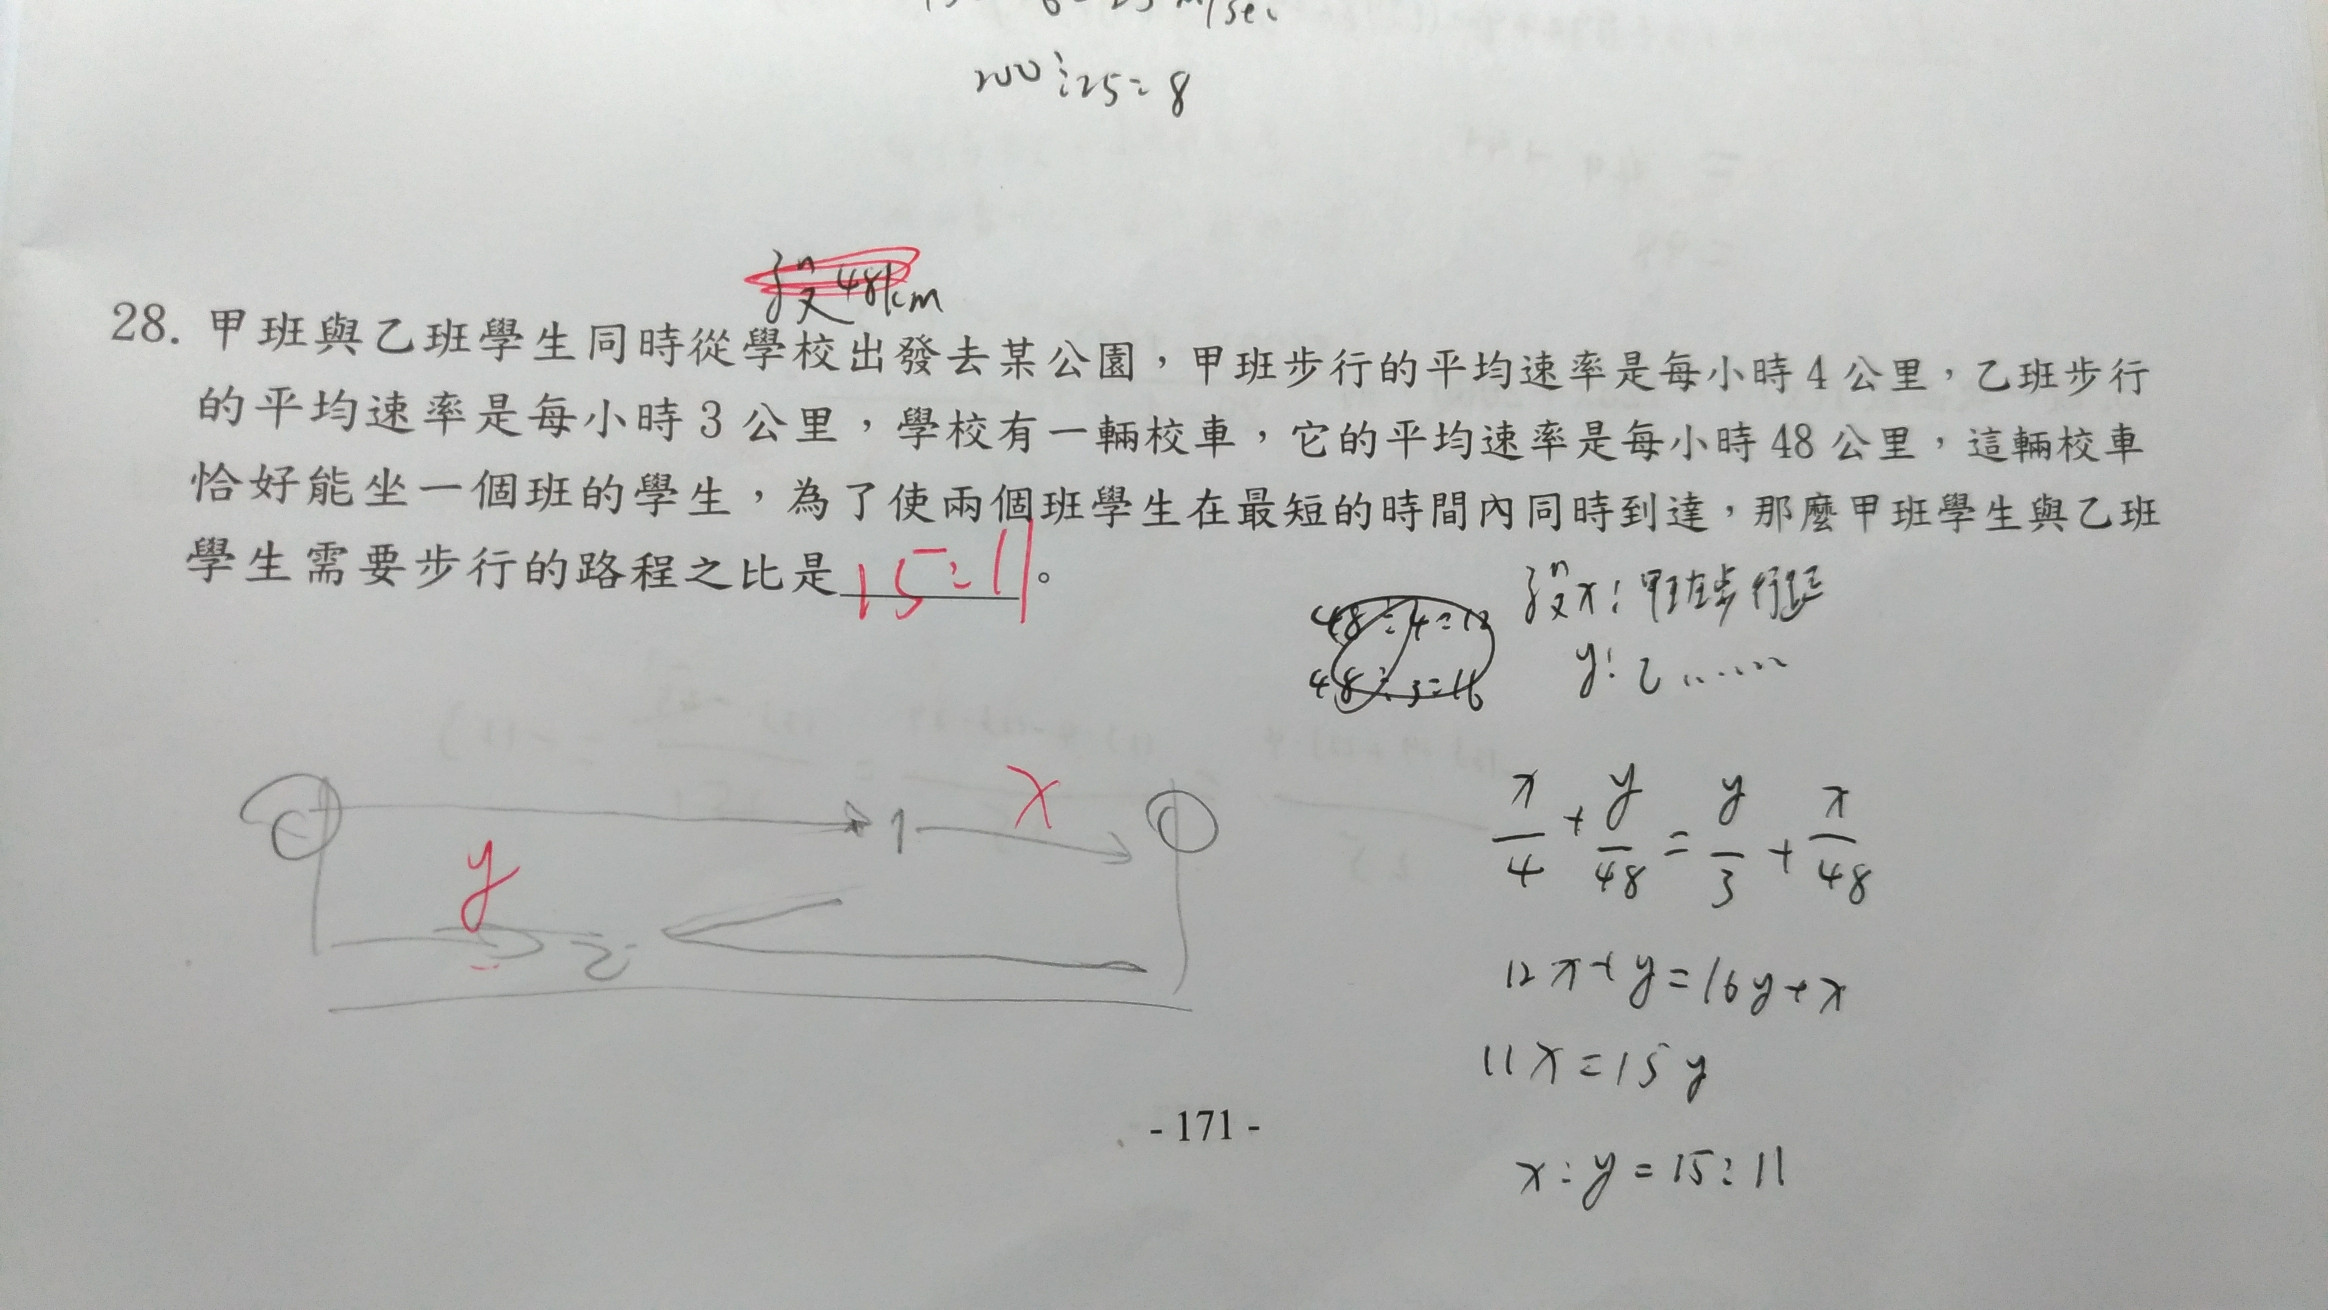 m/sec
200÷25=8
設48km
28. 甲班與乙班學生同時從學校出發去某公園，甲班步行的平均速率是每小時4公里，乙班步行
的平均速率是每小時3公里，學校有一輛校車，它的平均速率是每小時48公里，這輛校車
恰好能坐一個班的學生，為了使兩個班學生在最短的時間內同時到達，那麼甲班學生與乙班
學生需要步行的路程之比是15:11。
48÷4=12
48÷3=16
設x:甲步行
y:乙......
x
y
x/4+y/48=y/3+x/48
12x+y=16y+x
11x=15y
x:y=15:11
- 171 -